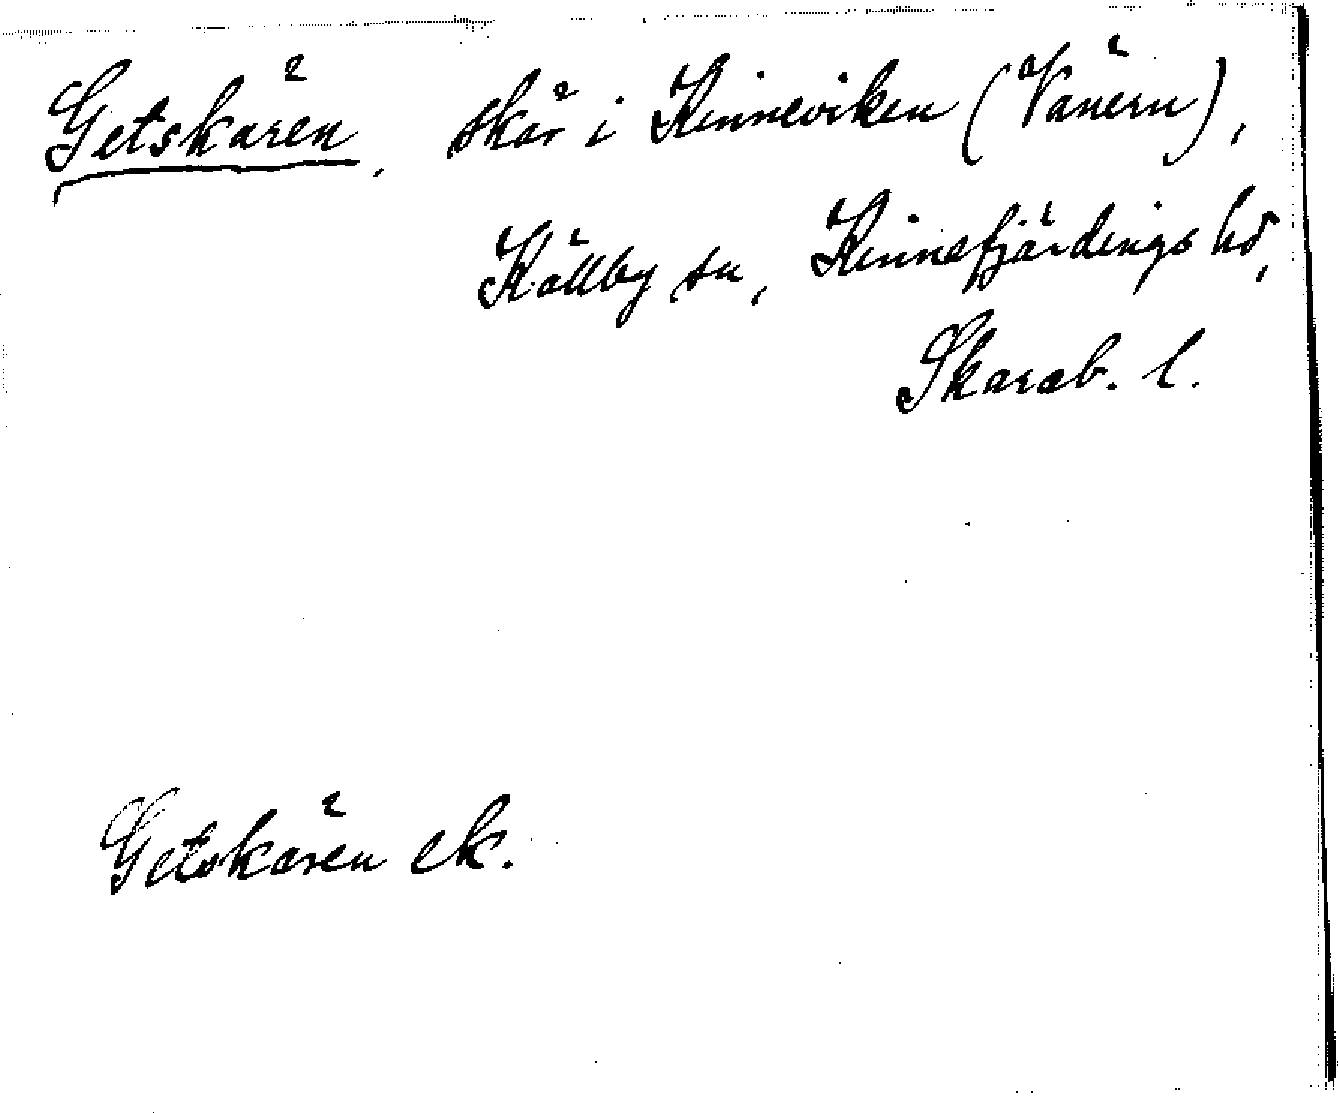 Getskären, skär i Kinneviken (Vänern),
Källby sn, Kinnefjärdings hd,
Skarab. l.
Getskären ek.